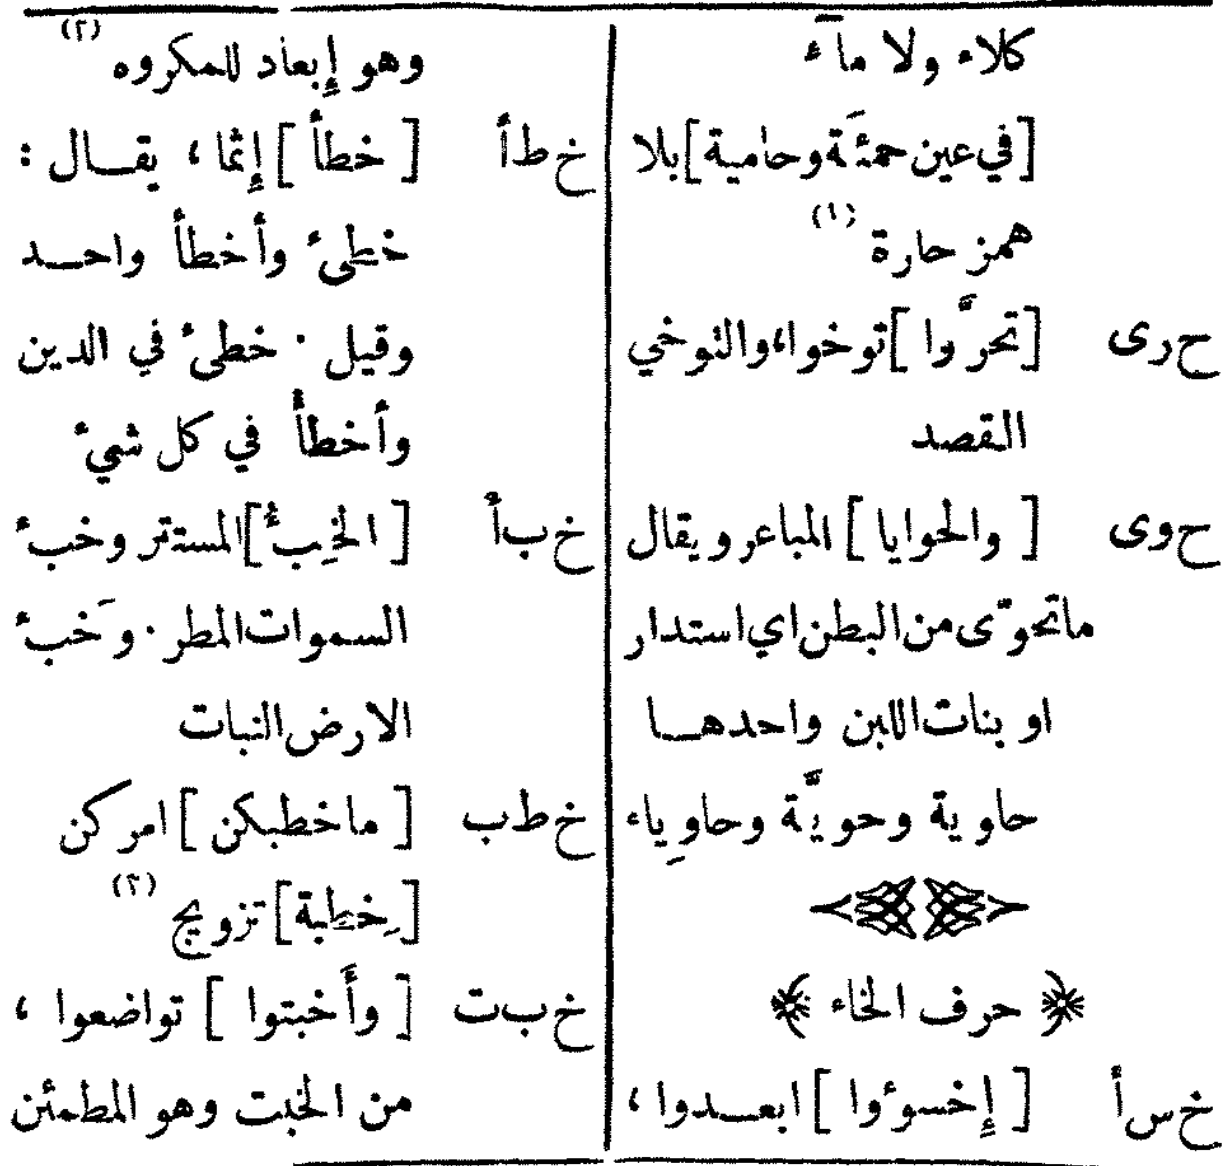 كلاء ولا مآء
[في عين حمئَة وحامية] بلا
همز حارة (١)
ح ر ى [تحرَّوا] توخوا، والتوخي
القصد
ح و ى [والحوايا] المباعر ويقال
ما تحوّى من البطن اي استدار
او بنات اللبن واحدهــا
حاوية وحويَّة وحاوِياء
حرف الخاء
خ س أ [إِخسوءُوا] ابعــدوا ،
وهو إِبعاد للمكروه (٢)
خ ط أ [خطأ] إِثما ، يقــال :
خطِئ وأخطأ واحــد
وقيل · خطئ في الدين
وأخطأ في كل شيء
خ ب أ [الخبءُ] المستتر وخبء
السموات المطر · وخَبء
الارض النبات
خ ط ب [ما خطبكن] امركن
[خِطبة] تزويج (٣)
خ ب ت [وأَخبتوا] تواضعوا ،
من الخبت وهو المطمئن